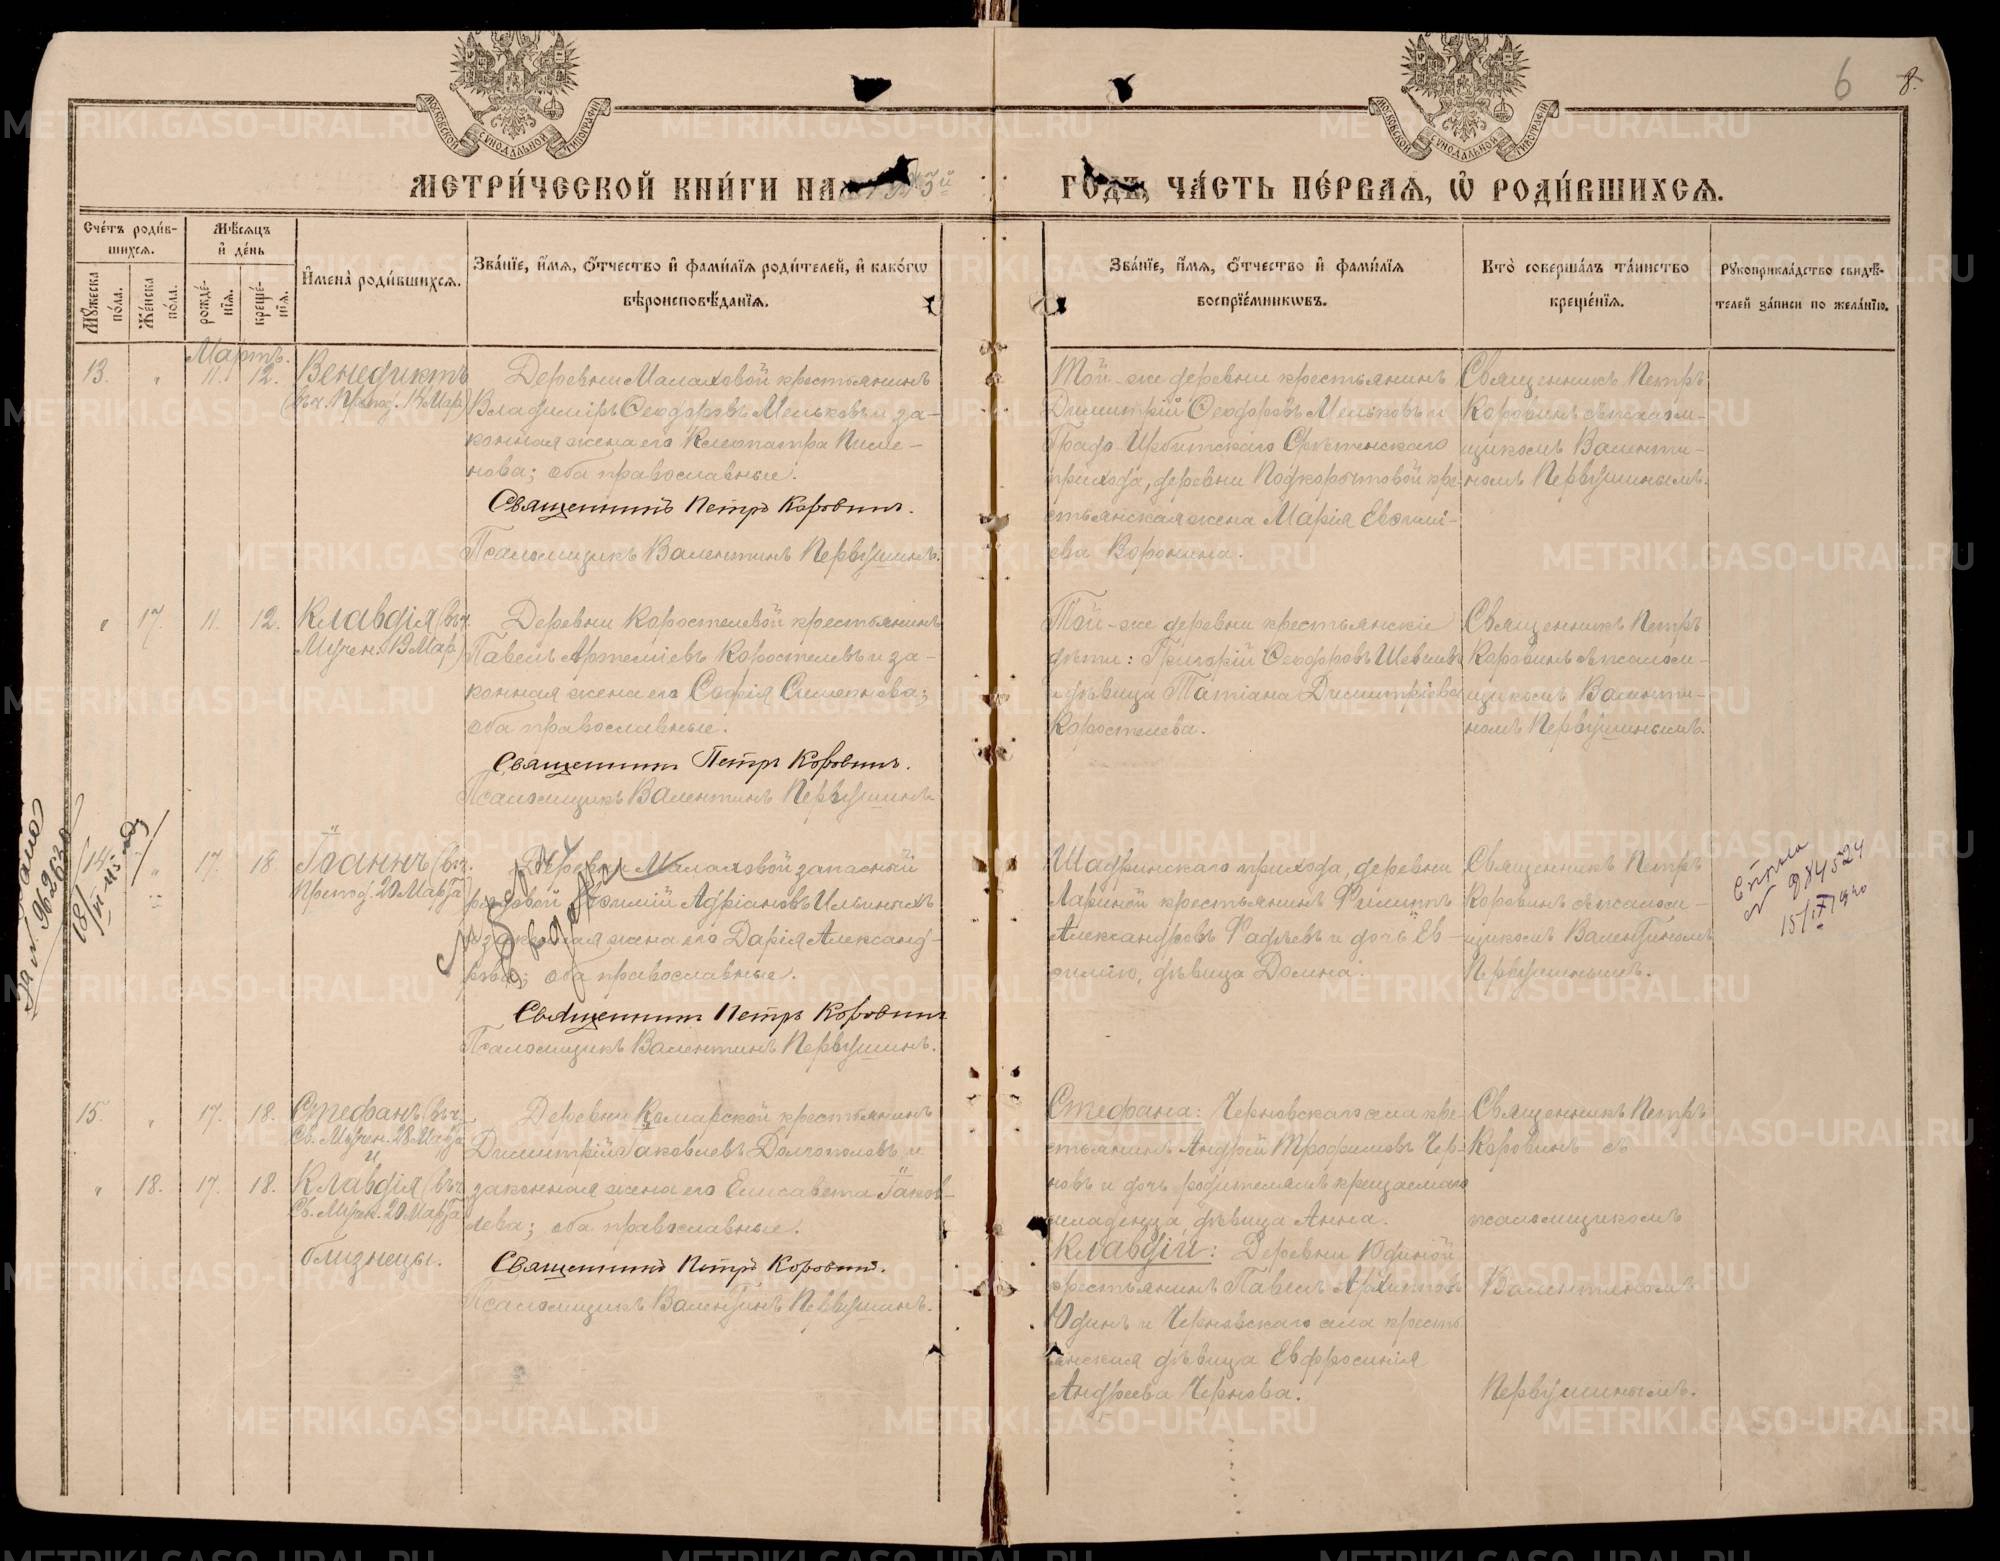 МОСКОВСКОЙ СѴНОДАЛЬНОЙ ТИПОГРАФІИ
МОСКОВСКОЙ СѴНОДАЛЬНОЙ ТИПОГРАФІИ
6
8.
МЕТРИ́ЧЕСКОЙ КНИ́ГИ НА
ГОДЪ, ЧА́СТЬ ПЕ́РВАѦ, Ѡ РОДИ́ВШИХСѦ.
Сче́тъ роди́в-
шихсѧ.
Мꙋжеска по́ла.
Же́нска по́ла.
Мѣсѧцъ
и де́нь
рожде́-
нїѧ.
креще́-
нїѧ.
И҆мена̀ роди́вшихсѧ.
Зва́нїе, и҆́мѧ, ѻ҆́тчество и҆ фами́лїѧ роди́телей, и҆ како́гѡ
вѣроисповѣ́данїѧ.
Зва́нїе, и҆́мѧ, ѻ҆́тчество и҆ фами́лїѧ
воспрїе́мникѡвъ.
Кто̀ соверша́лъ та́инство
креще́нїѧ.
Рꙋкоприкла́дство свидѣ́-
телей за́писи по жела́нїю.
Мартъ.
13. " 11. 12. Венедиктъ
(въч. Препод. 12 Мар)
Деревни Малаховой крестьянинъ
Владиміръ Ѳеодоровъ Мельковъ и за-
конная жена его Клеопатра Пиме-
нова; оба православные.
Священникъ Петръ Коровинъ.
Псаломщикъ Валентинъ Первушинъ.
Той-же деревни крестьянинъ
Димитрій Ѳеодоровъ Мельковъ и
Градо-Ирбитскаго Срѣтенскаго
прихода, деревни Подкорытовой кре-
стьянская жена Марія Евѳимі-
ева Воронина.
Священникъ Петръ
Коровинъ съ псалом-
щикомъ Валенти-
номъ Первушинымъ.
" 17. 11. 12. Клавдія (въч.
Мучен. Мар)
Деревни Коростелевой крестьянинъ
Павелъ Артеміевъ Коростелевъ и за-
конная жена его Софія Симеонова;
оба православные.
Священникъ Петръ Коровинъ.
Псаломщикъ Валентинъ Первушинъ.
Той-же деревни крестьянскіе
дѣти: Григорій Ѳеодоровъ
и дѣвица Татіана Димитріева
Коростелева.
Священникъ Петръ
Коровинъ съ псалом-
щикомъ Валенти-
номъ Первушинымъ.
14. " 17. 18 Іоаннъ (въч.
Препод. 20 Марта)
Деревни Малаховой запасный
рядовой Евѳимій Адріановъ Ильиныхъ
и законная жена его Дарія Александ-
рова; оба православные.
Священникъ Петръ Коровинъ
Псаломщикъ Валентинъ Первушинъ.
Шадринскаго прихода, деревни
Лариной крестьянинъ Филиппъ
Александровъ Фадѣевъ и дочь Ев-
ѳимію, дѣвица Домна.
Священникъ Петръ
Коровинъ съ псалом-
щикомъ Валентиномъ
Первушинымъ.
№ 984524
15/IX 1940
15. " 17. 18. Стефанъ (въч.
Св. Мучен. 28 Марта)
и
" 18. 17. 18. Клавдія (въч.
Св. Мучен. 20 Марта)
близнецы.
Деревни Комарской крестьянинъ
Димитрій Іаковлевъ Долгополовъ и
законная жена его Елисавета Іаков-
лева; оба православные.
Священникъ Петръ Коровинъ.
Псаломщикъ Валентинъ Первушинъ.
Стефана: Черновскаго села кре-
стьянинъ Андрей Трофимовъ Чер-
новъ и дочь родителямъ крещаемаго
младенца, дѣвица Анна.
Клавдіи: Деревни Юдиной
крестьянинъ Павелъ Архиповъ
Юдинъ и Черновскаго села кресть-
янская дѣвица Евфросинія
Андреева Чернова.
Священникъ Петръ
Коровинъ съ
псаломщикомъ
Валентиномъ
Первушинымъ.